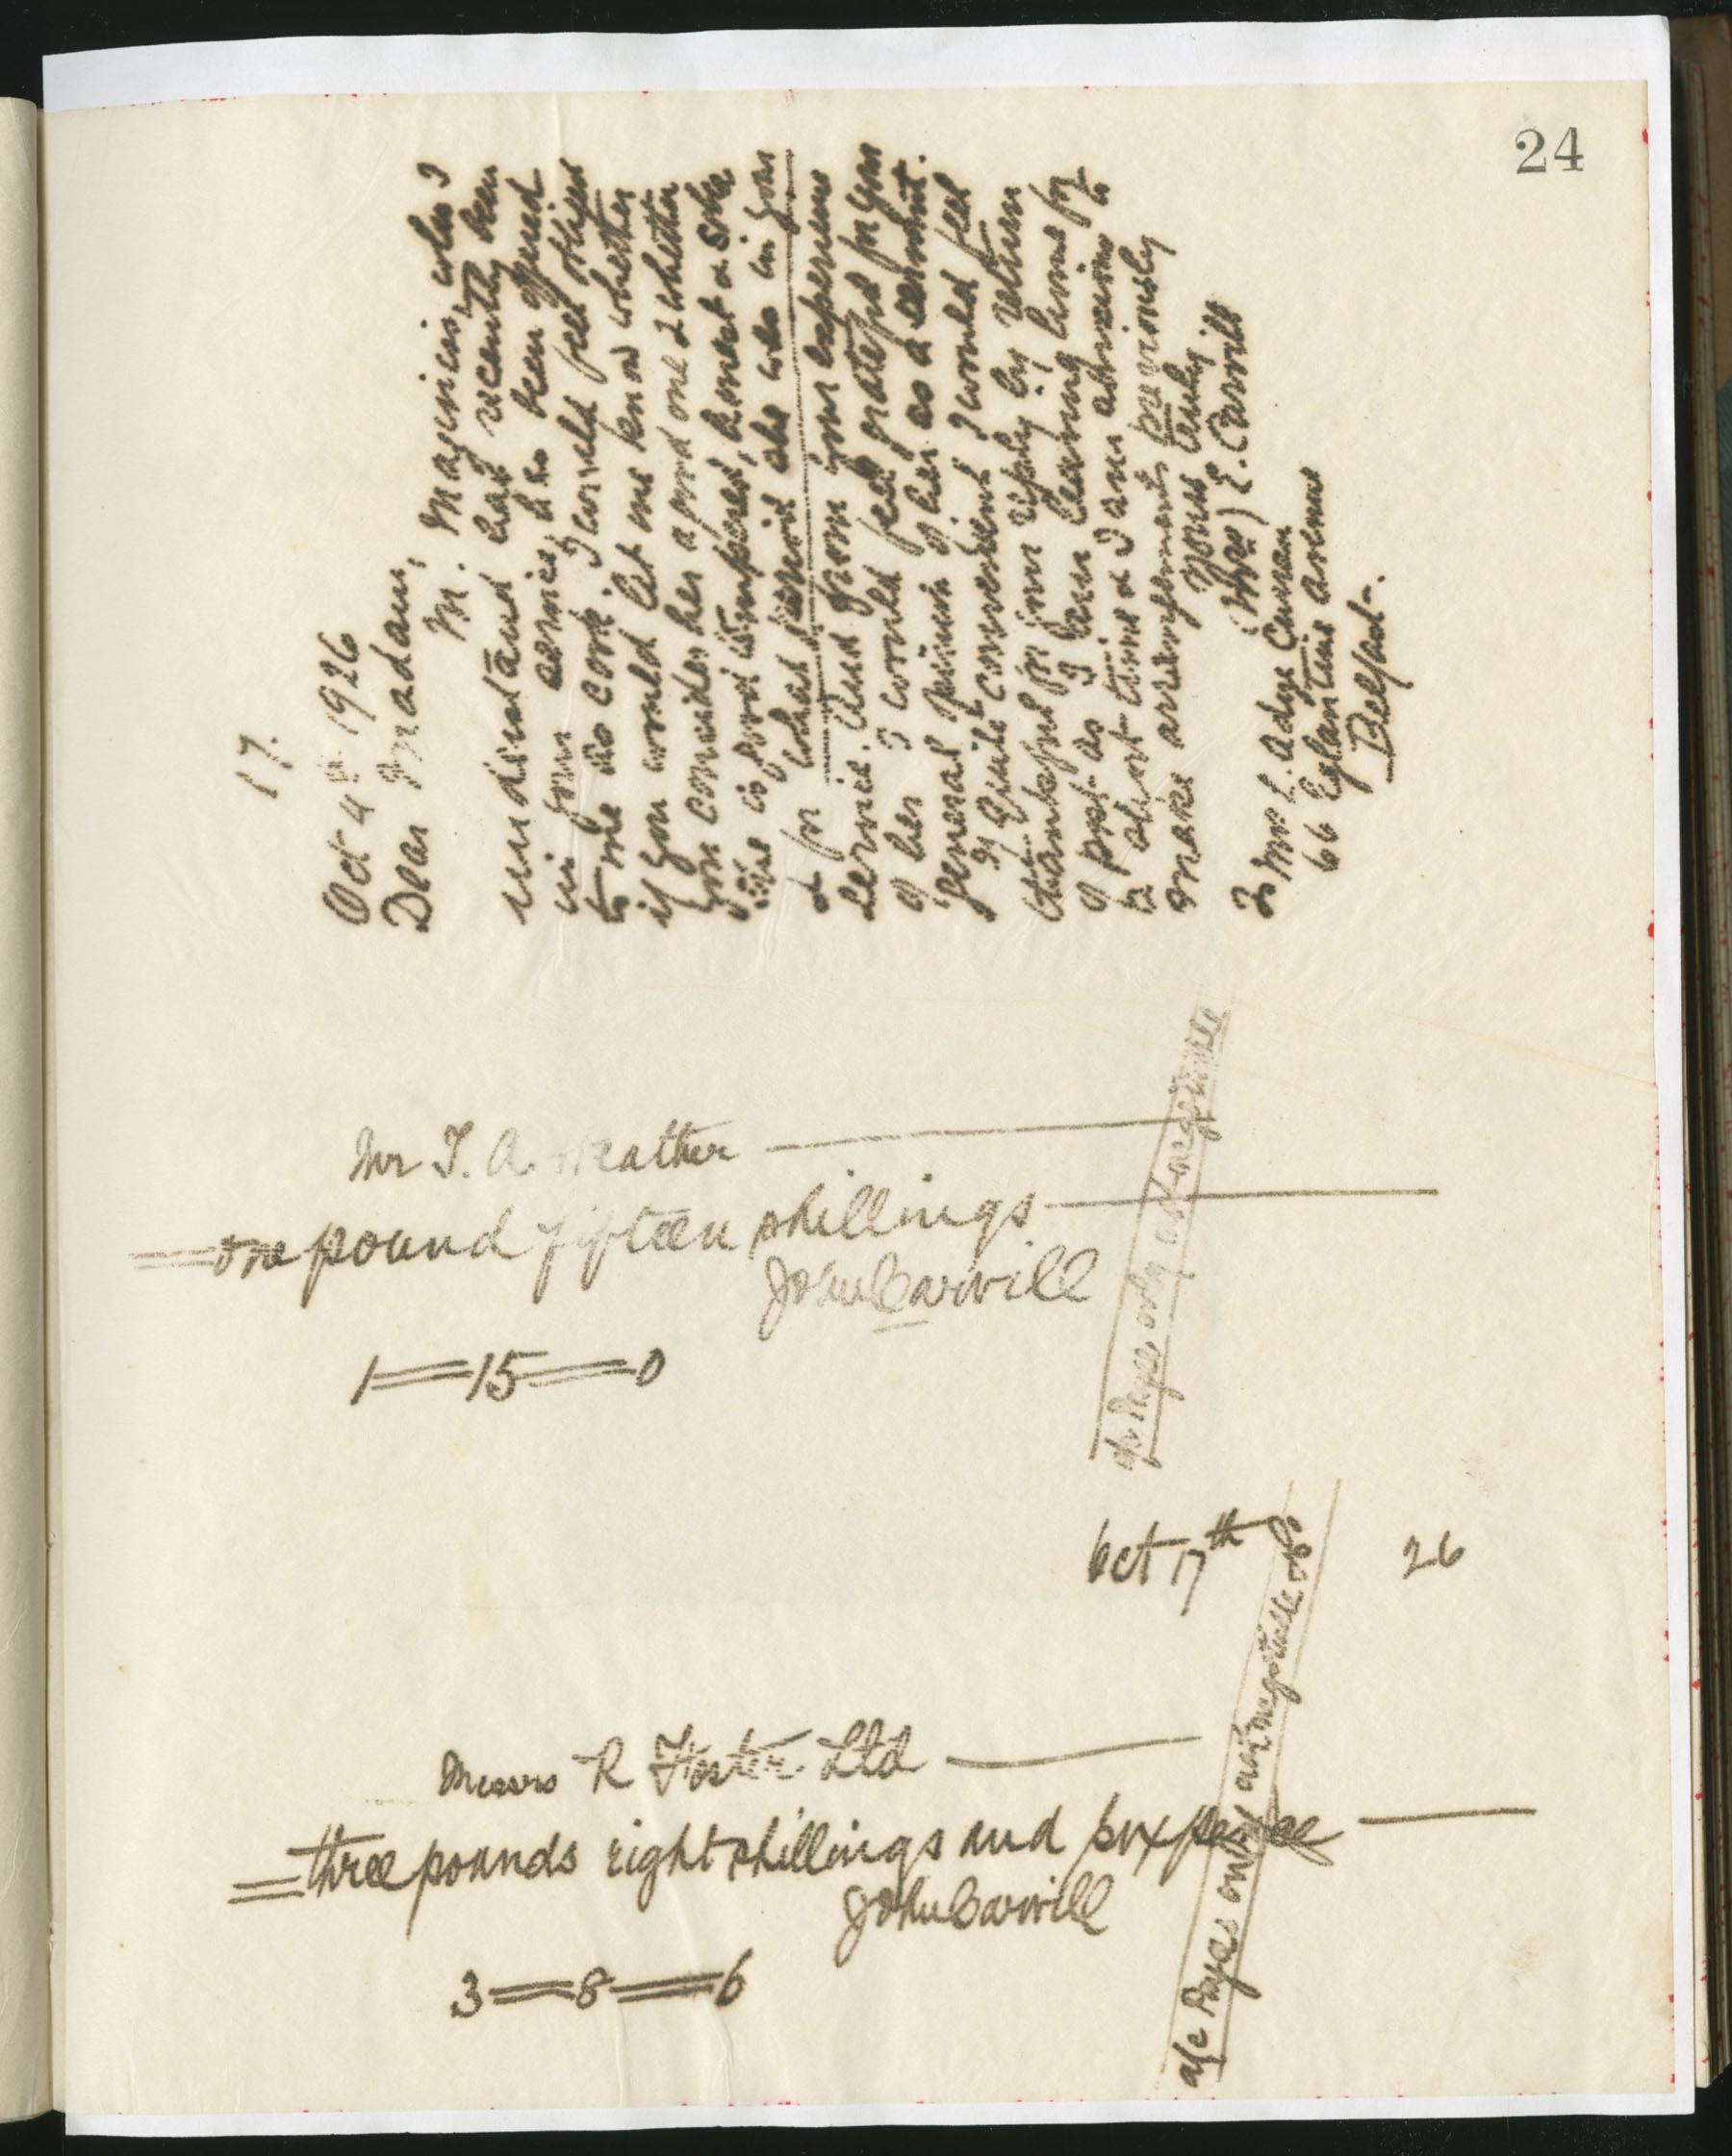 24
17.
Oct 4th 1926
Dear Madam,
M. Maginnis, who I
understand has recently been
in your service, has been offered
to me as cook. I would feel obliged
if you would let me know whether
you consider her a good one & whether
she is good tempered, honest &
& for what period she was in your
service. And from your experience
of her I would feel grateful for your
general opinion of her as a servant.
If quite convenient I would feel
thankful for your reply by return
of post as I am leaving home for
a short time & I am anxious to
make arrangements previously
Yours truly
(Mrs) E. Carvill
To Mrs L. Adge Curran
66 Eglantine Avenue
Belfast.
Mr T. A. Heather
one pound fifteen shillings
John Carvill
1=15=0
a/c Payee only
Oct 17th 26
Messrs R Foster Ltd
three pounds eight shillings and sixpence
John Carvill
3=8=6
a/c Payees only not negotiable